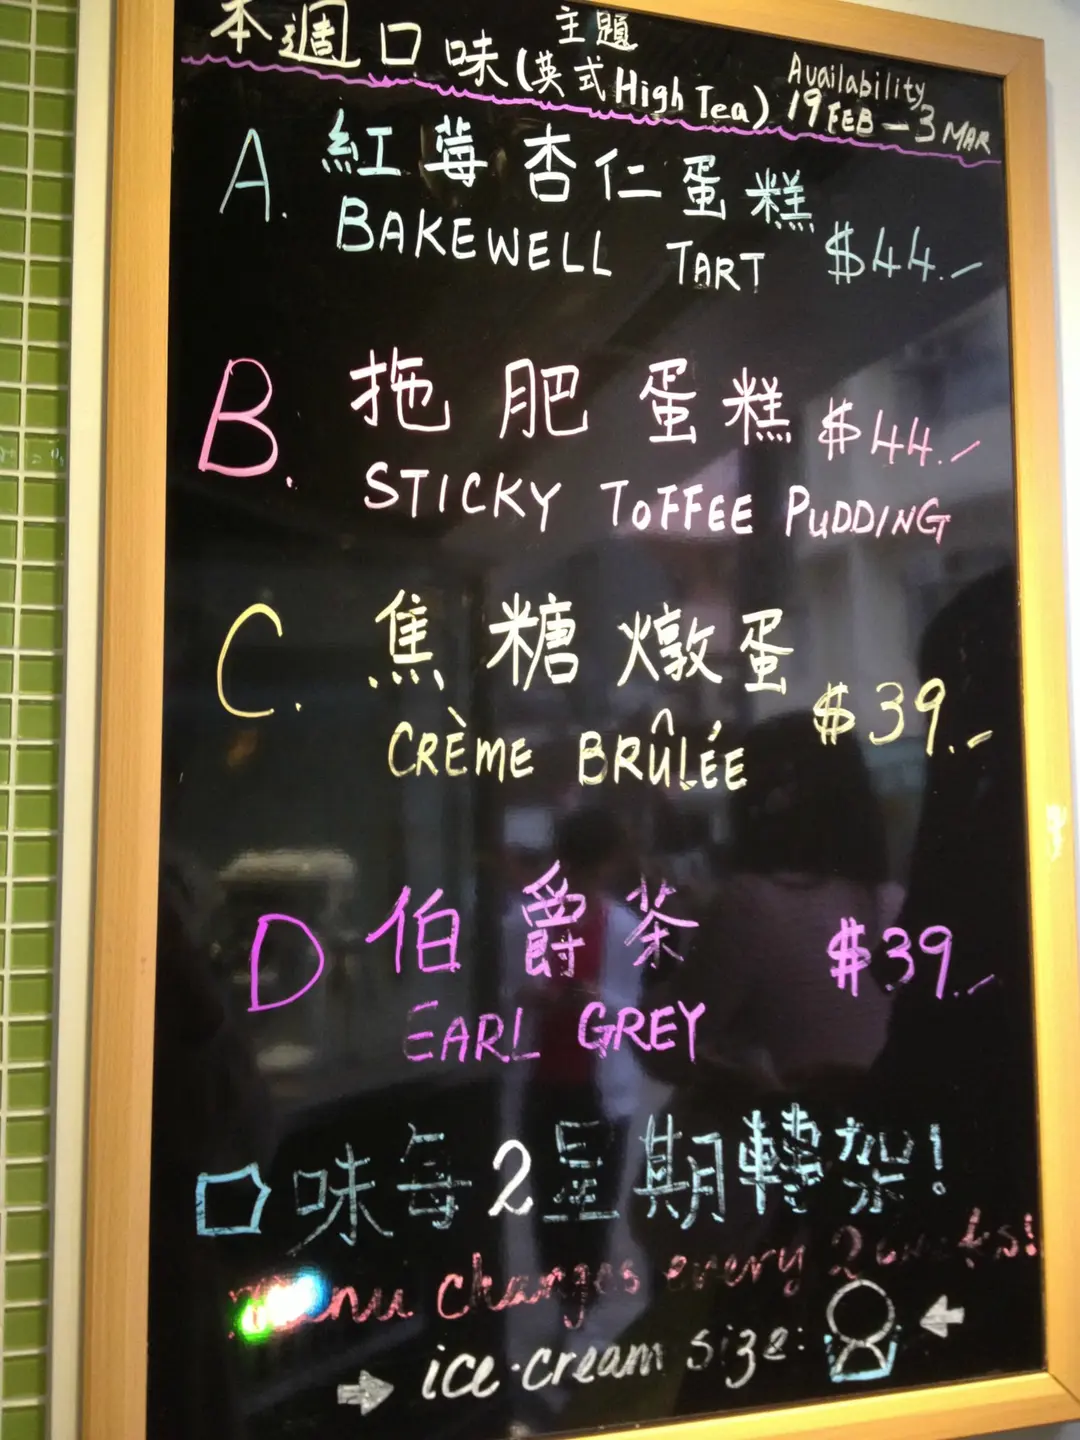 本週口味 主題
(英式High Tea) Availability
19 FEB - 3 MAR
A. 紅莓杏仁蛋糕
BAKEWELL TART $44.-
B. 拖肥蛋糕 $44.-
STICKY TOFFEE PUDDING
C. 焦糖燉蛋
CRÈME BRÛLÉE $39.-
D 伯爵茶 $39.-
EARL GREY
口味每2星期轉架!
menu changes every 2 weeks!
ice-cream size: